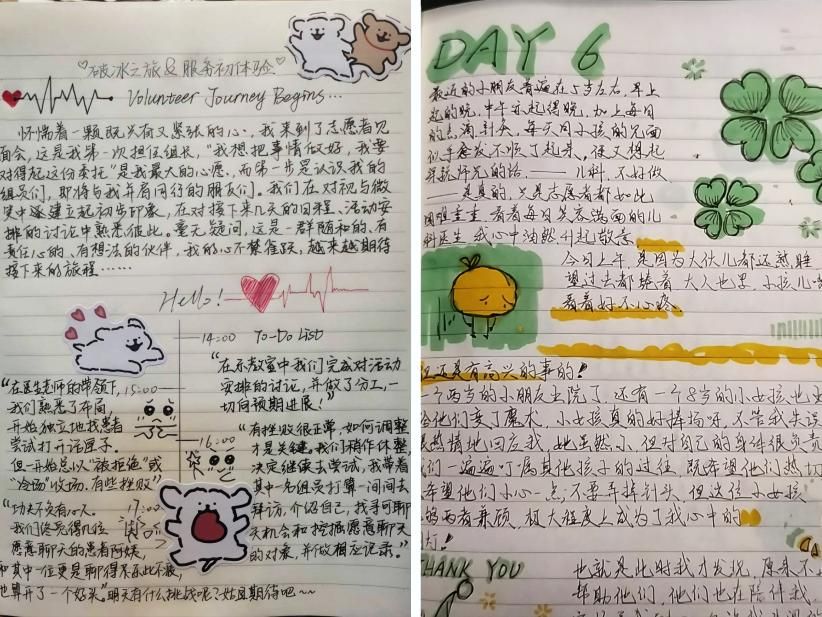 ♡破冰之旅&服务初体验♡
Volunteer Journey Begins...
怀惴着一颗既兴奋又紧张的心,我来到了志愿者见
面会,这是我第一次担任组长,“我想把事情做好,我要
对得起这份委托”是我最大的心愿,而第一步是认识我的
组员们,即将与我并肩同行的朋友们。我们在对视与微
笑中逐建立起初步印象,在对接下来几天的日程、活动安
排的讨论中熟悉彼此。毫无疑问,这是一群随和的、有
责任心的、有想法的伙伴,我的心不禁雀跃,越来越期待
接下来的旅程……
Hello!
14:00 To-Do List
“在示教室中我们完成对活动
安排的讨论,并做了分工,一
切向预期进展!”
“在医生老师的带领下,
我们熟悉了布局,
开始独立地找患者
尝试打开话匣子。
但一开始总以“被拒绝”或
“冷场”收场,有些挫败”
15:00
16:00
“有挫败很正常,如何调整
才是关键。我们稍作休整,
决定继续去尝试,我带着
其中一名组员打算一间间去
拜访,介绍自己,找寻可聊
天机会和挖掘愿意聊天
的对象,并做相应记录。”
17:00
“功夫不负有心人。
我们终见得几位
愿意聊天的患者阿姨,
和其中一位更是聊得乐此不疲,
也算开了一个好头。”明天有什么挑战呢?姑且期待吧~~
DAY 6
最近的小朋友普遍在5岁左右,早上
起的晚,中午亦起得晚,加上每日
的去
每天同小孩的见面
似乎愈发不顺了起来,
使又想起
——儿科,不好做
——是真的,只是志愿者都如此
困难重重,看着每日笑容满面的儿
科医生,我心中油然升起敬意
今日上午,是因为大伙儿都还熟睡
望过去都
着大人也累,小孩儿
看着好不心疼
还是有高兴的事的!
一个两岁的小朋友出院了,还有一个8岁的小女孩也
给他们变了魔术,小女孩真的好捧场呀,不管我失误
热情地回应我,她虽然小,但对自己的身体很负责
们一遍遍叮嘱其他孩子的过往,既希望他们热切
希望他们小心一点,不要弄掉针头,但这位小女孩
两者兼顾,极大程度上成为了我心中的
灯!
THANK YOU
也就是此时我才发现,原来不
帮助他们,他们也在陪伴我,